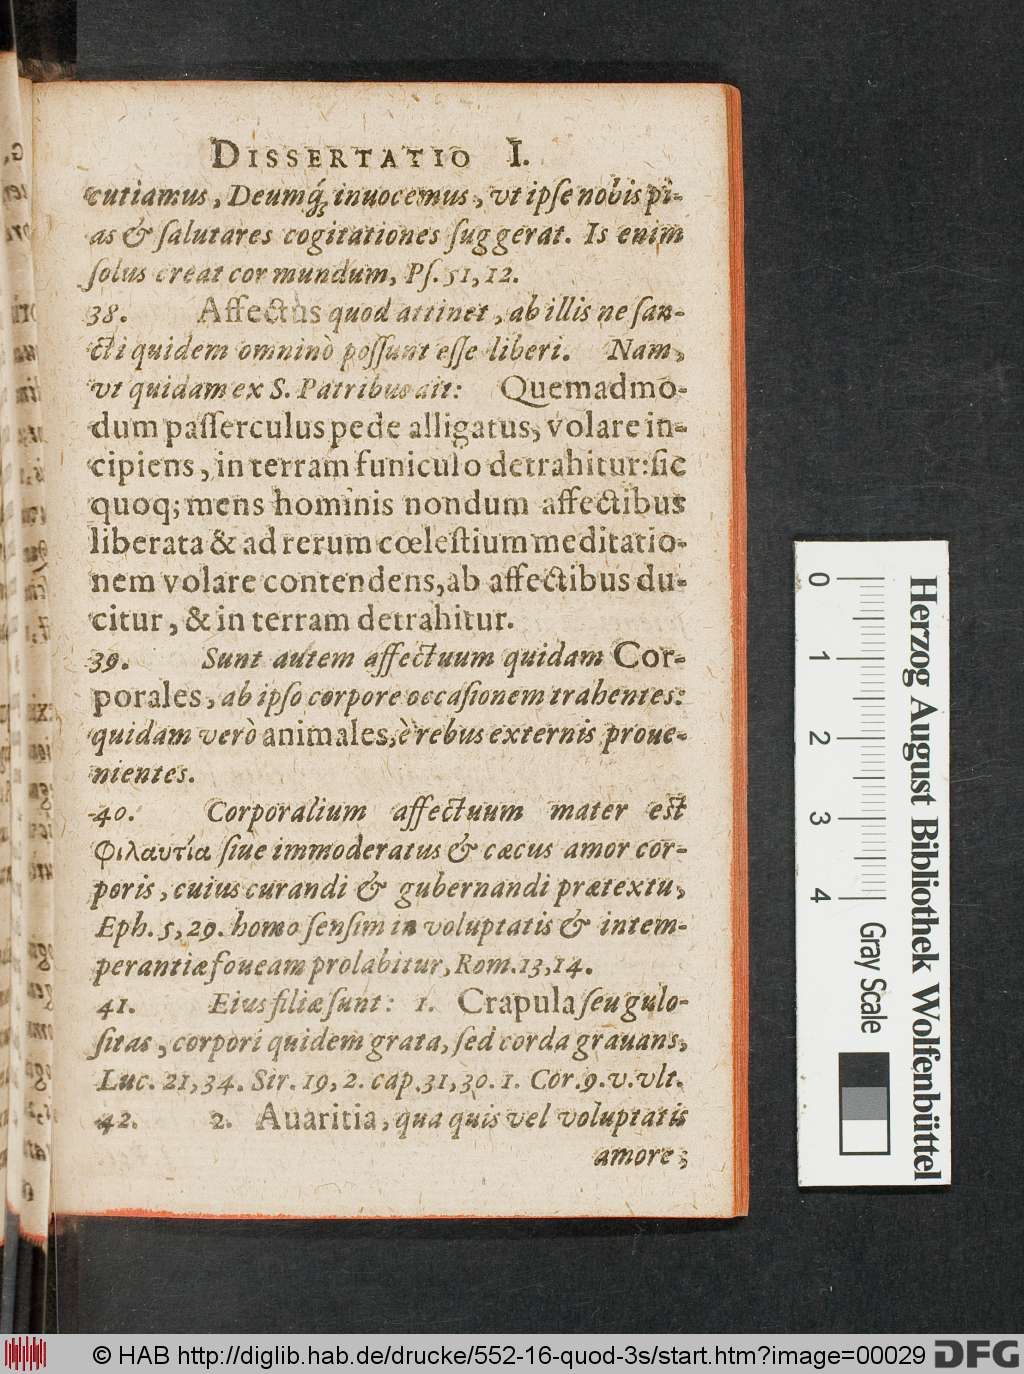 DISSERTATIO I.
cutiamus, Deumq́; inuocemus, vt ipſe nobis pi-
as & ſalutares cogitationes ſuggerat. Is enim
ſolus creat cor mundum, Pſ. 51, 12.
38. Affectus quod attinet, ab illis ne ſan-
cti quidem omninò poſſunt eſſe liberi. Nam,
vt quidam ex S. Patribus ait: Quemadmo-
dum paſſerculus pede alligatus, volare in-
cipiens, in terram funiculo detrahitur: ſic
quoq; mens hominis nondum affectibus
liberata & ad rerum cœleſtium meditatio-
nem volare contendens, ab affectibus du-
citur, & in terram detrahitur.
39. Sunt autem affectuum quidam Cor-
porales, ab ipſo corpore occaſionem trahentes:
quidam verò animales, è rebus externis proue-
nientes.
40. Corporalium affectuum mater eſt
Φιλαυτία ſiue immoderatus & cæcus amor cor-
poris, cuius curandi & gubernandi prætextu,
Eph. 5, 29. homo ſenſim in voluptatis & intem-
perantiæ foueam prolabitur, Rom. 13, 14.
41. Eius filiæ ſunt: 1. Crapula ſeu gulo-
ſitas, corpori quidem grata, ſed corda grauans,
Luc. 21, 34. Sir. 19, 2. cap. 31, 30. 1. Cor. 9. v. vlt.
42. 2. Auaritia, qua quis vel voluptatis
amore,
Herzog August Bibliothek Wolfenbüttel
0 1 2 3 4 Gray Scale
© HAB http://diglib.hab.de/drucke/552-16-quod-3s/start.htm?image=00029 DFG